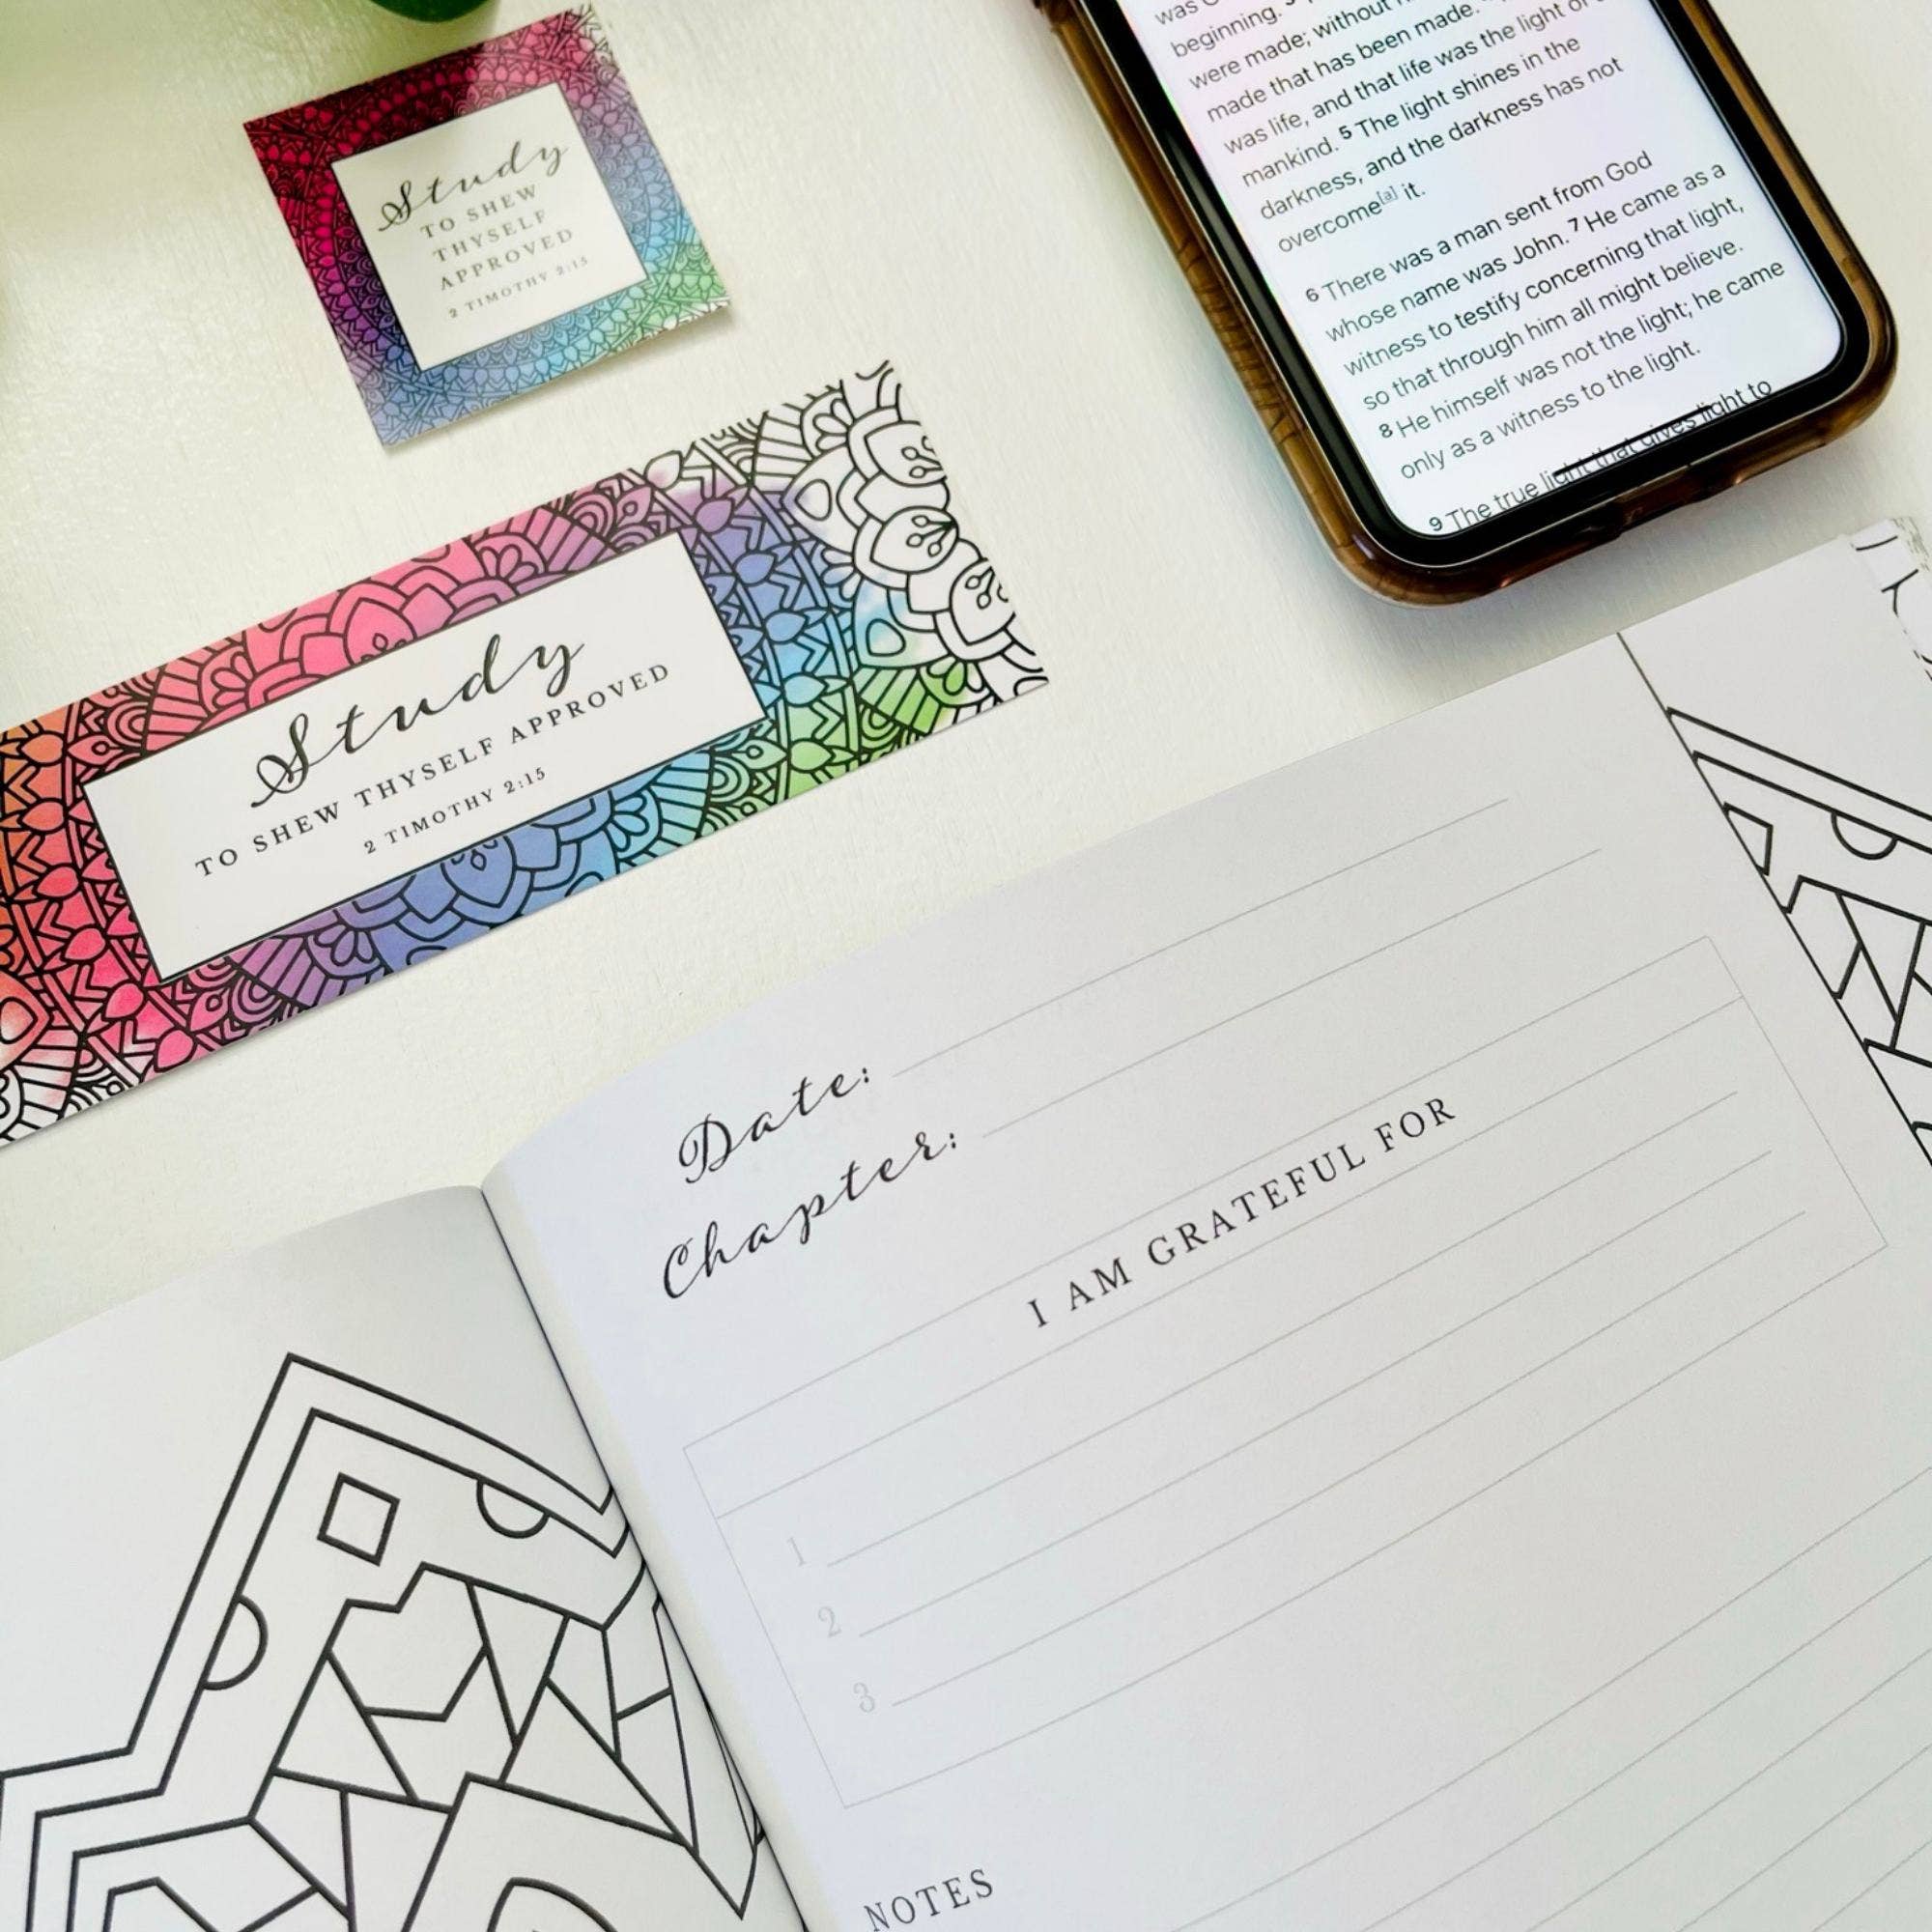 Study
TO SHEW
THYSELF
APPROVED
2 TIMOTHY 2:15
Study
TO SHEW THYSELF APPROVED
2 TIMOTHY 2:15
was
beginning. 3
were made; without
made that has been made.
was life, and that life was the light of
mankind. 5 The light shines in the
darkness, and the darkness has not
overcome[a] it.
6 There was a man sent from God
whose name was John. 7 He came as a
witness to testify concerning that light,
so that through him all might believe.
8 He himself was not the light; he came
only as a witness to the light.
9 The true light that gives light to
Date:
Chapter:
I AM GRATEFUL FOR
1
2
3
NOTES